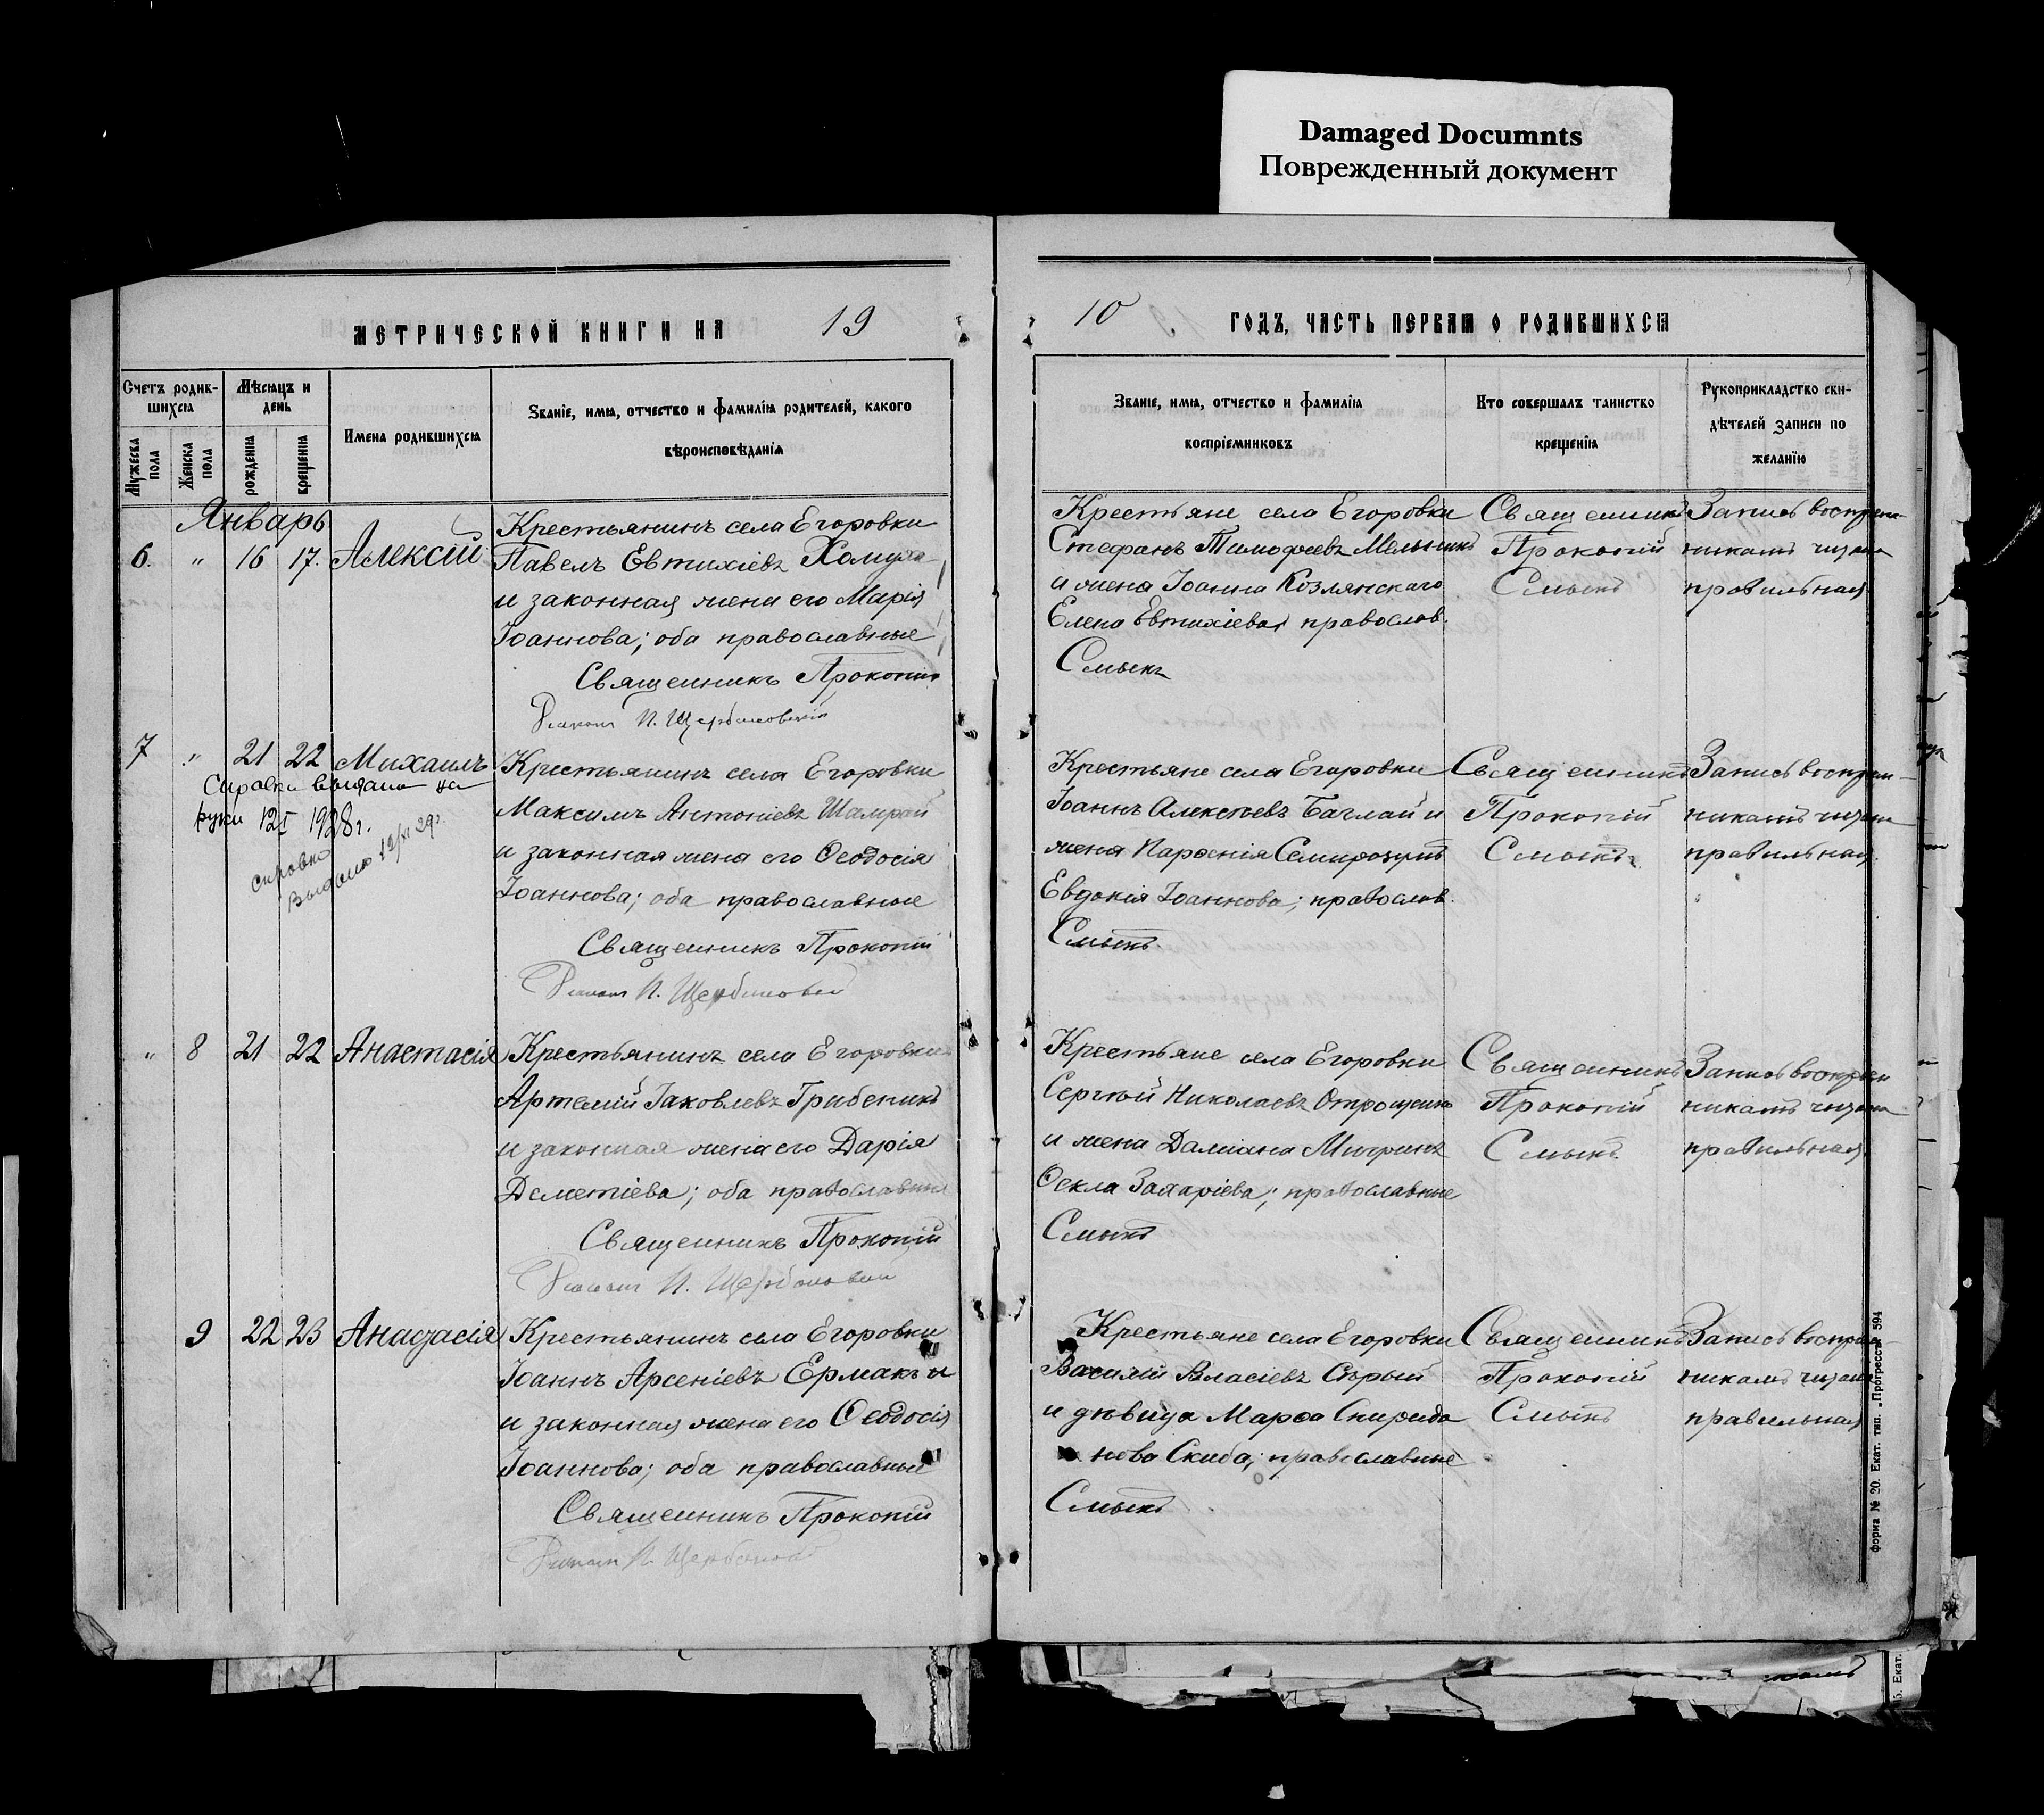 Damaged Documnts
Поврежденный документ
МЕТРИЧЕСКОЙ КНИГИ НА 19
Счетъ родив-
шихся
Мѣсяцъ и
день
Имена родившихся
Званіе, имя, отчество и фамилія родителей, какого
вѣроисповѣданія
Мужеска
пола
Женска
пола
рожденія
крещенія
Январь
6. " 16 17. Алексій
Крестьянинъ села Егоровки
Павелъ Евтихіевъ
и законная жена его Марія
Іоаннова; оба православные
Священникъ Прокопій
П.
7 " 21 22 Михаилъ
Справка выдана на
руки 12/I 1928г.
справка
выдана 29г.
Крестьянинъ села Егоровки
Максимъ Антоніевъ Шамрай
и законная жена его Ѳеодосія
Іоаннова; оба православные
Священникъ Прокопій
П.
" 8 21 22 Анастасія
Крестьянинъ села Егоровки
Артемій Іаковлевъ Грибеникъ
и законная жена его Дарія
Дометіева; оба православные
Священникъ Прокопій
П.
9 22 23 Анастасія
Крестьянинъ села Егоровки
Іоаннъ Арсеніевъ Ермакъ и
и законная жена его Ѳеодосія
Іоаннова; оба православные
Священникъ Прокопій
П.
10 ГОДЪ, ЧАСТЬ ПЕРВАЯ О РОДИВШИХСЯ
Званіе, имя, отчество и фамилія
воспріемниковъ
Кто совершалъ таинство
крещенія
Рукоприкладство сви-
дѣтелей записи по
желанію
Крестьяне села Егоровки
Стефанъ Тимофеевъ Мельникъ
и жена Іоанна Козлянскаго
Елена Евтихіева, православ.
Смыкъ
Священникъ
Прокопій
Смыкъ
Запись воспріем-
никамъ читана
правильная
Крестьяне села Егоровки
Іоаннъ Алексѣевъ Баглай и
жена Парѳенія Семирозумъ
Евдокія Іоаннова; православ.
Смыкъ
Священникъ
Прокопій
Смыкъ
Запись воспріем-
никамъ читана
правильная.
Крестьяне села Егоровки
Сергѣй Николаевъ Отрощенко
и жена Даміана
Ѳекла Захаріева; православные
Смыкъ
Священникъ
Прокопій
Смыкъ
Запись воспріем
никамъ читана
правильная
Крестьяне села Егоровки
Василій Власіевъ Сѣрый
и дѣвица Марѳа Спиридо
нова Скиба; православные
Смыкъ
Священникъ
Прокопій
Смыкъ
Запись воспріем-
никамъ читана
правильная
форма № 20. Екат. тип. „Прогрессъ" 594